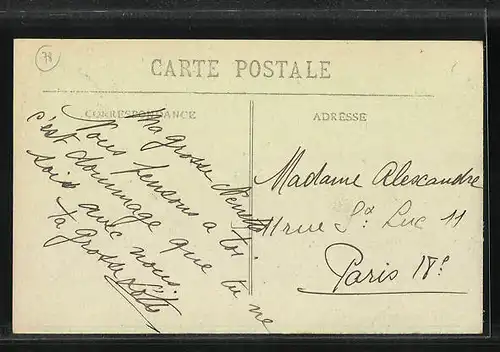 78
CARTE POSTALE
CORRESPONDANCE
ADRESSE
Ma grosse
Nous pensons a toi
c'est dommage que tu ne
sois avec nous.
ta grosse
Madame Alexandre
11 rue St Luc 11
Paris 18e